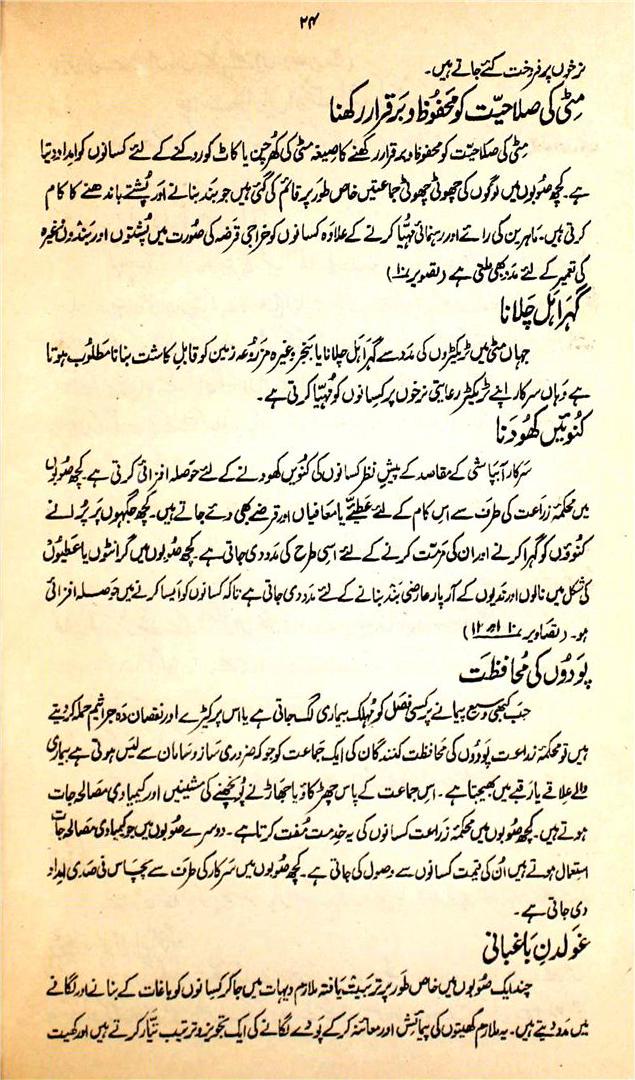 ۲۴
نرخوں پر فروخت کئے جاتے ہیں۔
مِٹی کی صلاحیّت کو محفُوظ و برقرار رکھنا
مِٹی کی صلاحیّت کو محفوظ و برقرار رکھنے کا صیغہ مٹی کی کُھرچن یا کاٹ کو روکنے کے لئے کسانوں کو امداد دیتا
ہے۔ کچھ صُوبوں میں لوگوں کی چھوٹی چھوٹی جماعتیں خاص طور پر قائم کی گئی ہیں جو بند بنانے اور پُشتے باندھنے کا کام
کرتی ہیں۔ ماہرین کی رائے اور رہنمائی مُہیّا کرنے کے علاوہ کسانوں کو خراجی قرضہ کی صُورت میں پُشتوں اور بندوں وغیرہ
کی تعمیر کے لئے مدد بھی ملتی ہے (تصویر ۱۰)
گہرا ہَل چلانا
جہاں مٹی میں ٹریکٹروں کی مدد سے گہرا ہل چلانا یا بنجر وغیرہ مزروعہ زمین کو قابلِ کاشت بنانا مطلُوب ہوتا
ہے وہاں سرکار اپنے ٹریکٹر رعایتی نرخوں پر کِسانوں کو مُہیّا کرتی ہے۔
کنُوئیں کھودَنا
سرکار آبپاشی کے مقاصد کے پیشِ نظر کسانوں کی کنُویں کھودنے کے لئے حوصلہ افزائی کرتی ہے۔ کچھ صُوبوں
میں محکمۂ زراعت کی طرف سے اس کام کے لئے عطیّے یا معافیاں اور قرضے بھی دئے جاتے ہیں۔ کچھ جگہوں پر پُرانے
کنُوؤں کو گہرا کرنے اور ان کی مَرمّت کرنے کے لئے اسی طرح کی مدد دی جاتی ہے۔ کچھ صُوبوں میں گرانٹوں یا عطیوں
کی شکل میں نالوں اور ندیوں کے آر پار عارضی بند بنانے کے لئے مدد دی جاتی ہے تاکہ کسانوں کو ایسا کرنے میں حوصلہ افزائی
ہو۔ (تصاویر ۱۰ اور ۱۲)
پَودوں کی مُحافظت
جب کبھی وسیع پیمانے پر کسی فصل کو مُہلک بیماری لگ جاتی ہے یا اس پر کیڑے اور نقصان دہ جراثیم حملہ کر دیتے
ہیں تو محکمۂ زراعت پَودوں کی محافظت کنندگان کی ایک جماعت کو جو کہ ضروری ساز و سامان سے لیس ہوتی ہے بیماری
والے علاقے یا رقبے میں بھیجتا ہے۔ اس جماعت کے پاس چھڑکاؤ یا جھاڑنے پُونچھنے کی مشینیں اور کیمیاوی مصالحہ جات
ہوتے ہیں۔ کچھ صُوبوں میں محکمۂ زراعت کسانوں کی یہ خدمت مُفت کرتا ہے۔ دوسرے صُوبوں میں جو کیمیاوی مصالحہ جات
استعمال ہوتے ہیں اُن کی قیمت کسانوں سے وصُول کی جاتی ہے۔ کچھ صُوبوں میں سرکار کی طرف سے پچاس فی صدی امداد
دی جاتی ہے۔
باغبانی
چند ایک صُوبوں میں خاص طور پر تربیت یافتہ ملازم دیہات میں جا کر کسانوں کو باغات کے بنانے اور لگانے
میں مدد دیتے ہیں۔ یہ ملازم کھیتوں کی پیمائش اور معائنہ کر کے پودے لگانے کی ایک تجویز و ترتیب تیّار کرتے ہیں اور کھیت